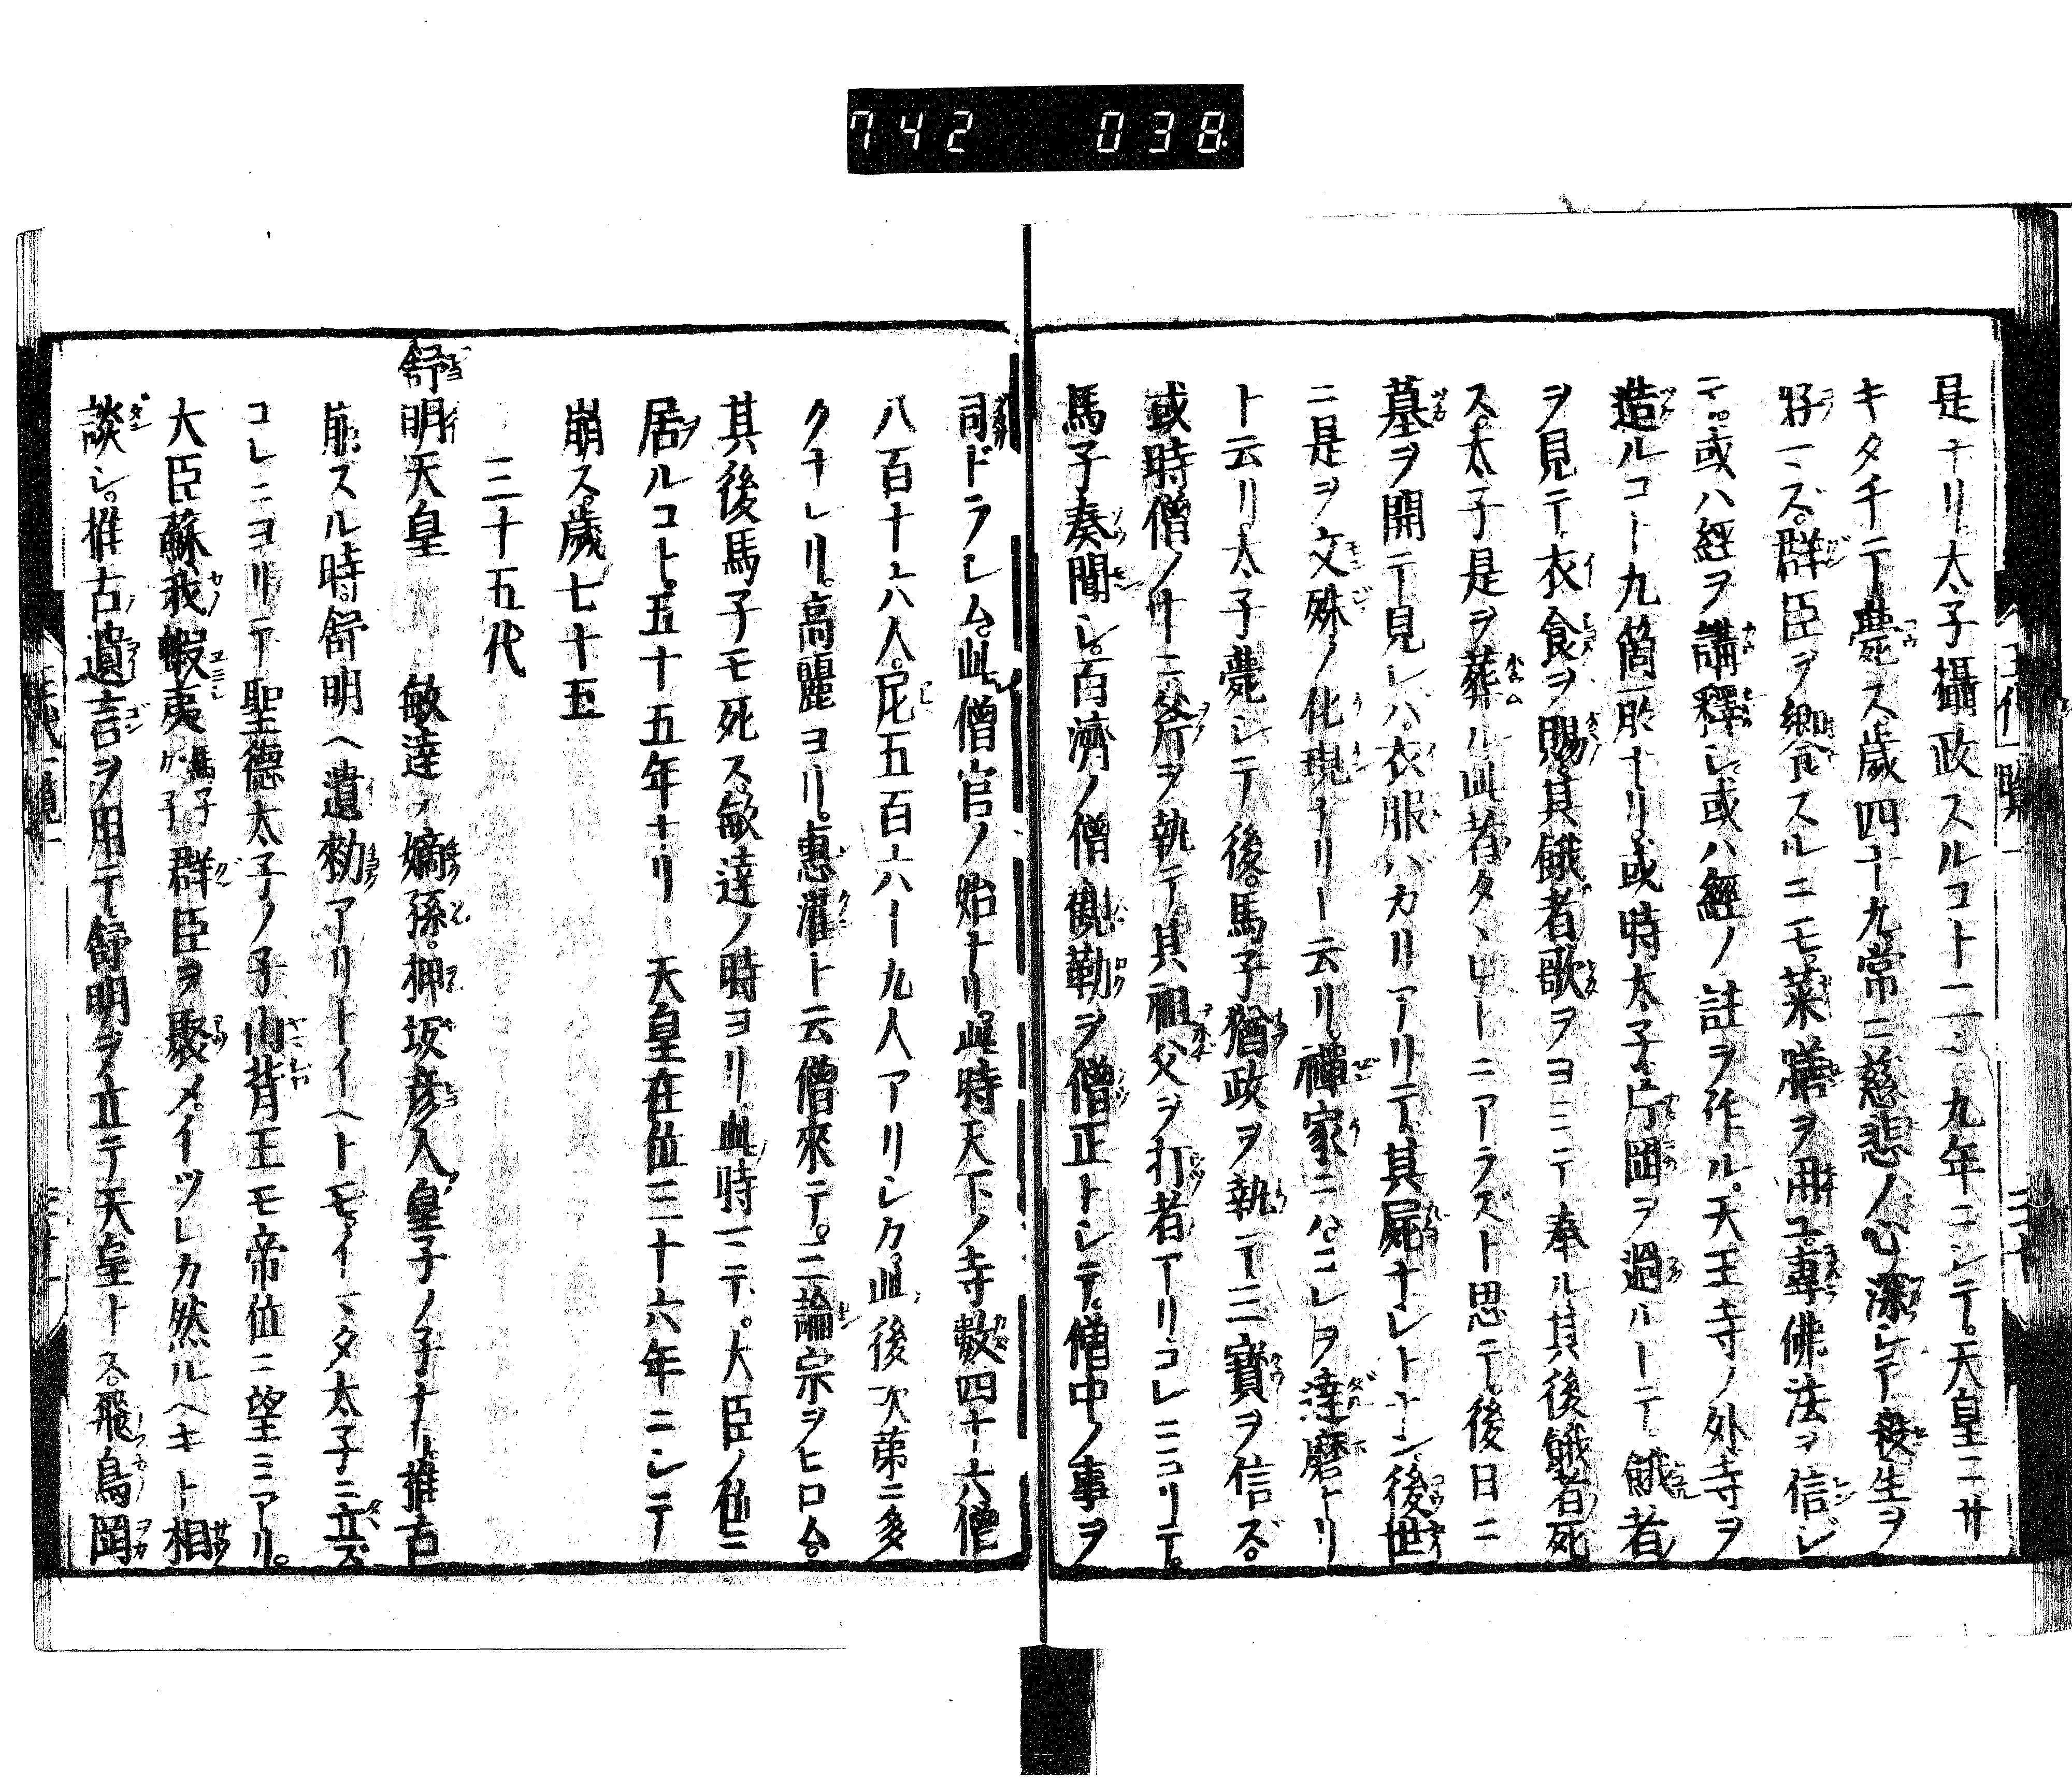 742 038
是ナリ。太子攝政スルコト二十九年ニシテ。天皇ニサ
キタチテ薨ス。歳四十九。常ニ慈悲ノ心深シテ殺生ヲ
好マズ。群臣ヲ饗食スルニモ。菜膳ヲ用ユ。專佛法ヲ信シ
テ。或ハ經ヲ講釋シ。或ハ經ノ註ヲ作ル。天王寺ノ外。寺ヲ
造ルコト九箇所ナリ。或時太子片岡ヲ過ルトテ。餓者
ヲ見テ。衣食ヲ賜。其餓者歌ヲヨミテ奉ル。其後餓者死
ス。太子是ヲ葬ル。此者タヾ人ニアラズト思テ。後日ニ
墓ヲ開テ見レバ。衣服バカリアリテ。其屍ナシトナン。後世
ニ是ヲ文殊ノ化現ナリト云リ。禪家ニハ。コレヲ達磨ナリ
ト云リ。太子薨シテ後。馬子猶政ヲ執テ三寶ヲ信ズ。
或時僧ノ中ニ斧ヲ執テ其祖父ヲ打者アリ。コレニヨリテ。
馬子奏聞シ。百濟ノ僧觀勒ヲ僧正トシテ。僧中ノ事ヲ
司ドラシム。此僧官ノ始ナリ。此時天下ノ寺數四十六。僧
八百十六人。尼五百六十九人アリシカ。此後次第ニ多
クナレリ。高麗ヨリ。惠灌ト云僧來テ。三論宗ヲヒロム。
其後馬子モ死ス。敏達ノ時ヨリ此時マテ。大臣ノ位ニ
居ルコト。五十五年ナリ。天皇在位三十六年ニシテ
崩ス。歳七十五
三十五代
舒明天皇 敏達ノ嫡孫。押坂彦人皇子ノ子ナリ。推古
崩スル時。舒明ヘ遺勅アリトイヘトモ。イマタ太子ニ立ズ
コレニヨリテ聖德太子ノ子山背王モ帝位ニ望ミアリ。
大臣蘇我蝦夷馬子ガ子群臣ヲ聚メ。イツレカ然ルヘキト相
談シ。推古ノ遺言ヲ用テ。舒明ヲ立テ天皇トス。飛鳥岡